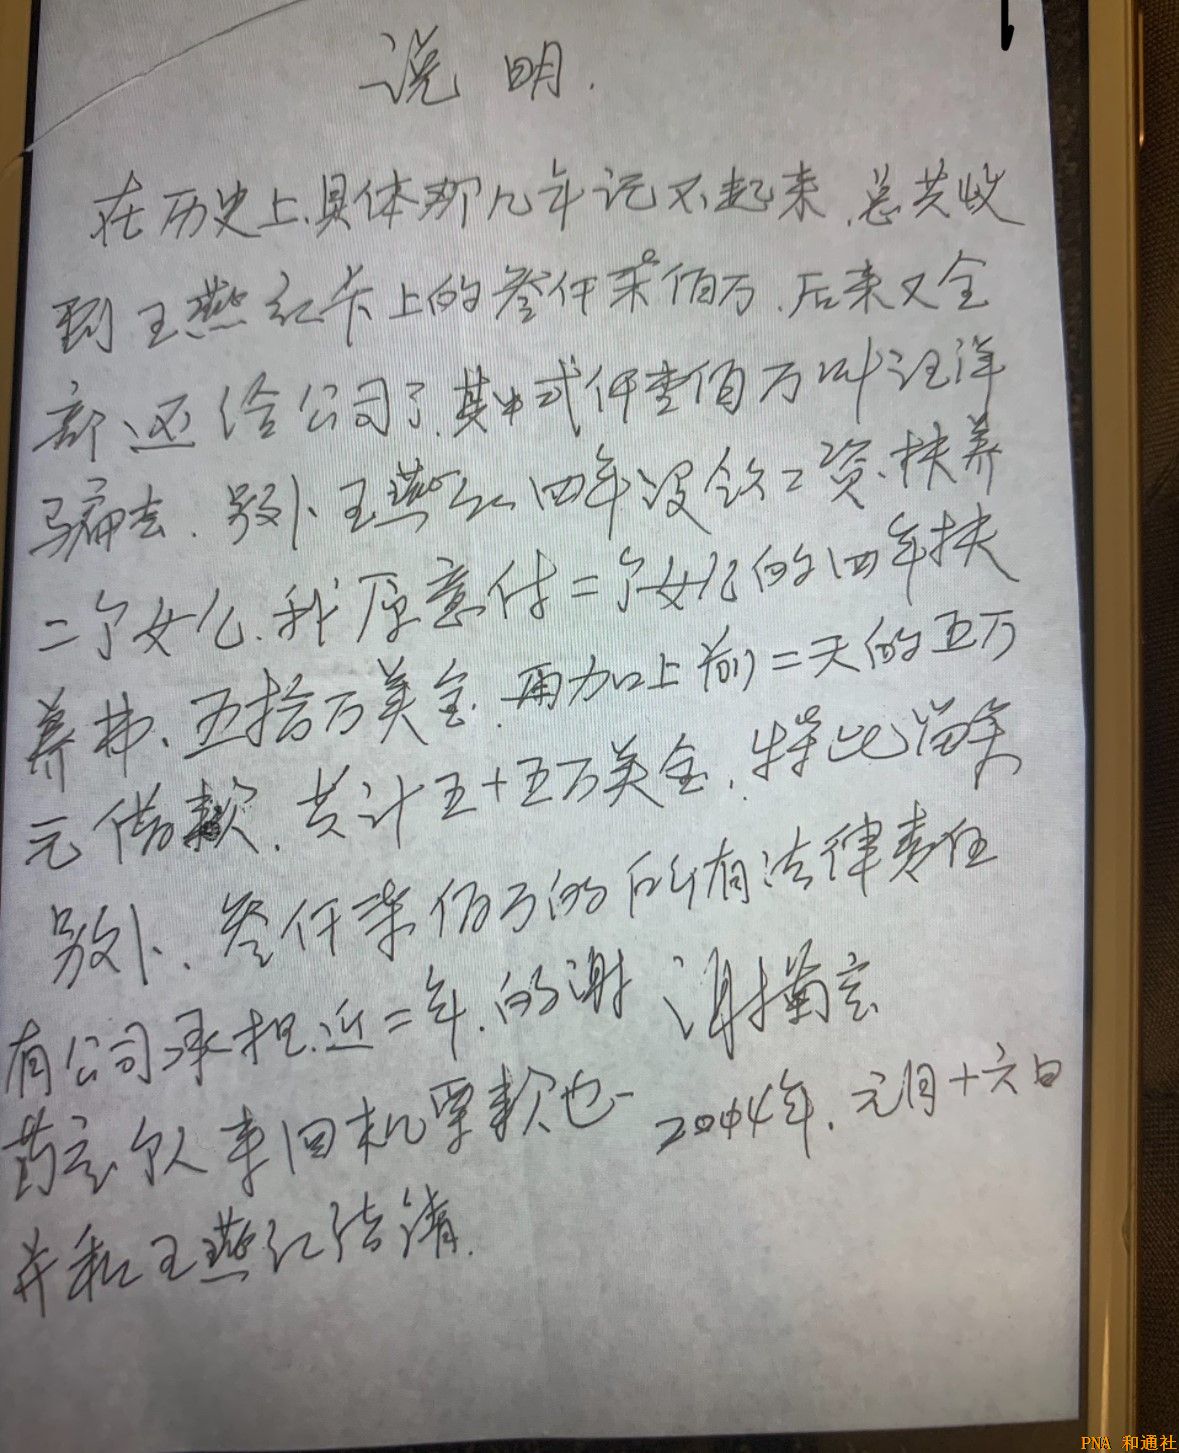 说明.
在历史上.具体那几年记不起来.总共收
到王燕红卡上的叁仟柒佰万.后来又全
部还给公司了.其中弍仟壹佰万叫汪洋
骗去.另外王燕红四年没领工资.扶养
二个女儿.我愿意付二个女儿的四年扶
养费、五拾万美金.再加上前二天的五万
元借款.共计五十五万美金.特此
另外、叁仟柒佰万的所有法律责任
有公司承担.近二年.的谢
谢
个人来回机票款也
2014年.元月十六日
并和王燕红结清.
PNA 和通社